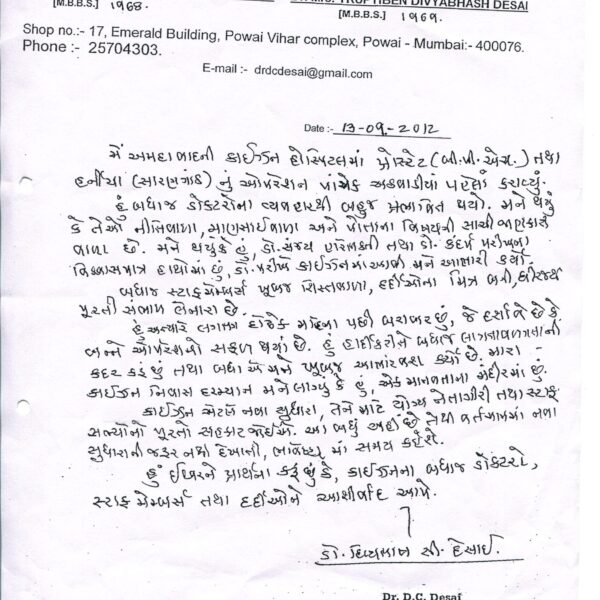 [M.B.B.S.] 1968. DR. MRS. TRUPTIBEN DIVYABHASH DESAI
[M.B.B.S.] 1969.
Shop no.:- 17, Emerald Building, Powai Vihar complex, Powai - Mumbai:- 400076.
Phone :- 25704303.
E-mail :- drdcdesai@gmail.com
Date :- 13-09-2012
મેં અમદાવાદની કાઈઝન હોસ્પિટલમાં પ્રોસ્ટેટ (બી.પી.એચ.) તથા
હર્નીયા (સારણગાંઠ) નું ઓપરેશન પાંચેક અઠવાડીયાં પહેલાં કરાવ્યું.
હું બધાજ ડોક્ટરોના વ્યવહારથી બહુજ પ્રભાવિત થયો. મને થયું
કે તેઓ નીતિવાળા, માણસાઈવાળા અને પોતાના વિષયની સાચી જાણકારી
વાળા છે. મને થયું કે હું, ડો. સંજય તથા ડો. કંદર્પ પરીખના
વિશ્વાસપાત્ર હાથોમાં છું, ડો. પરીખે કાઈઝનમાં આવી મને આભારી કર્યો.
બધાજ સ્ટાફ મેમ્બર્સ ખૂબજ શિસ્તવાળા, દર્દીઓના મિત્ર બની, ધીરજથી
પૂરતી સંભાળ લેનારા છે.
હું અત્યારે લગભગ દોઢેક મહિના પછી બરાબર છું, જે દર્શાવે છે કે
બન્ને ઓપરેશનો સફળ થયાં છે. હું હાર્દિકરીતે બધાજ લાગતાવળગતાની
કદર કરું છું તથા બધાએ મને ખૂબજ આભારવશ કર્યો છે. મારા
કાઈઝન નિવાસ દરમ્યાન મને લાગ્યું કે હું, એક માનવતાના મંદીરમાં છું.
કાઈઝન એટલે નવા સુધારા, તેને માટે યોગ્ય નેતાગીરી તથા સ્ટાફ
સભ્યોનો પૂરતો સહકાર જોઈએ. આ બધું અહીં છે તેથી વર્તમાનમાં નવા
સુધારાની જરૂર નથી દેખાતી, ભવિષ્ય માં સમય કહેશે.
હું ઈશ્વરને પ્રાર્થના કરું છું કે, કાઈઝનના બધાજ ડોક્ટરો,
સ્ટાફ મેમ્બર્સ તથા દર્દીઓને આશીર્વાદ આપે.
ડો. દિવ્યભાષ સી. દેસાઈ.
Dr. D.C. Desai